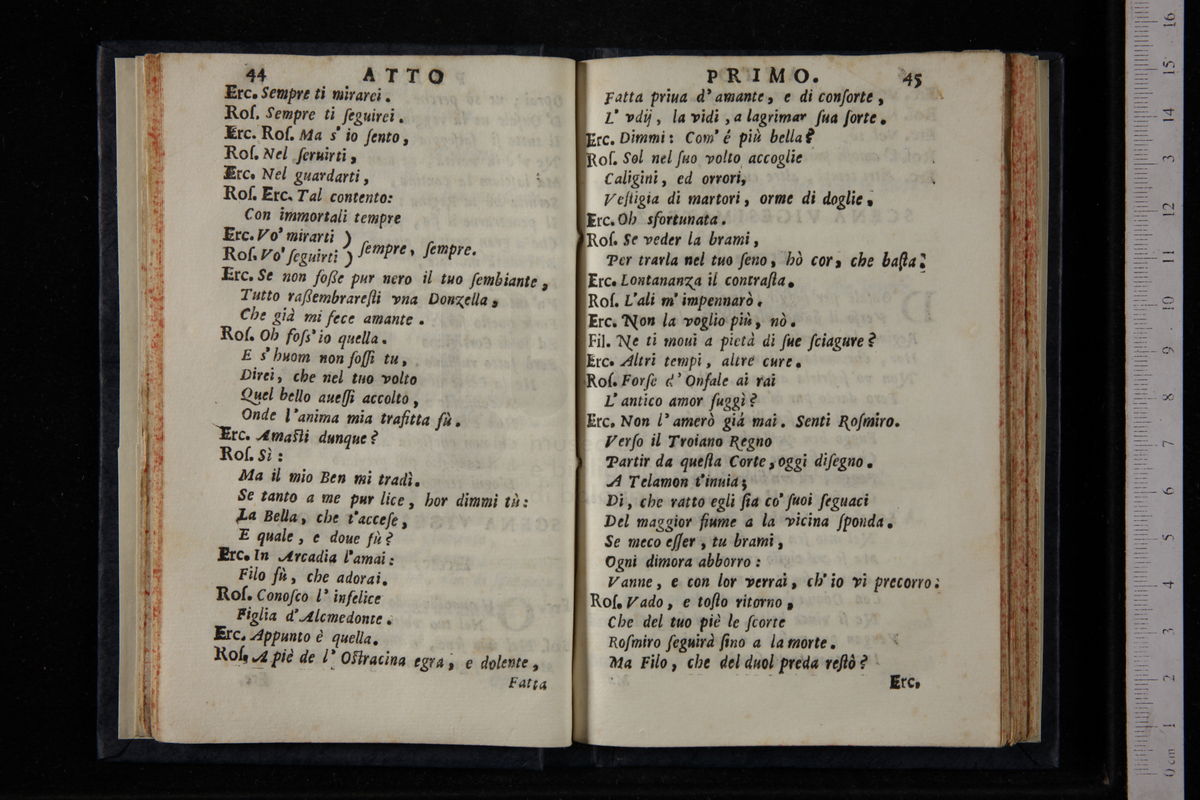 44 ATTO
Erc. Sempre ti mirarei.
Roſ. Sempre ti ſeguirei.
Erc. Roſ. Ma s' io ſento,
Roſ. Nel ſeruirti,
Erc. Nel guardarti,
Roſ. Erc. Tal contento:
Con immortali tempre
Erc. Vo' mirarti )
Roſ. Vo' ſeguirti ) ſempre, ſempre.
Erc. Se non foße pur nero il tuo ſembiante,
Tutto raßembrareſti vna Donzella,
Che già mi fece amante.
Roſ. Oh foſs'io quella.
E s'huom non foſſi tu,
Direi, che nel tuo volto
Quel bello aueſſi accolto,
Onde l'anima mia trafitta fù.
Erc. Amaſti dunque?
Roſ. Sì:
Ma il mio Ben mi tradì.
Se tanto a me pur lice, hor dimmi tù:
La Bella, che t'acceſe,
E quale, e doue fù?
Erc. In Arcadia l'amai:
Filo fù, che adorai.
Roſ. Conoſco l' infelice
Figlia d'Alcmedonte.
Erc. Appunto è quella.
Roſ. A piè de l' Oſtracina egra, e dolente,
Fatta
PRIMO. 45
Fatta priua d' amante, e di conſorte,
L' vdij, la vidi, a lagrimar ſua ſorte.
Erc. Dimmi: Com' é più bella?
Roſ. Sol nel ſuo volto accoglie
Caligini, ed orrori,
Veſtigia di martori, orme di doglie.
Erc. Oh sfortunata.
Roſ. Se veder la brami,
Per trarla nel tuo ſeno, hò cor, che baſta.
Erc. Lontananza il contraſta.
Roſ. L'ali m'impennarò.
Erc. Non la voglio più, nò.
Fil. Ne ti moui a pietà di ſue ſciagure?
Erc. Altri tempi, altre cure.
Roſ. Forſe d' Onfale ai rai
L' antico amor fuggì?
Erc. Non l'amerò giá mai. Senti Roſmiro.
Verſo il Troiano Regno
Partir da queſta Corte, oggi diſegno.
A Telamon t'inuia;
Di, che ratto egli ſia co' ſuoi ſeguaci
Del maggior fiume a la vicina ſponda.
Se meco eſſer, tu brami,
Ogni dimora abborro:
Vanne, e con lor verrai, ch'io vi precorro.
Roſ. Vado, e toſto ritorno,
Che del tuo piè le ſcorte
Roſmiro ſeguirà ſino a la morte.
Ma Filo, che del duol preda reſtò?
Erc.
0 cm 1 2 3 4 5 6 7 8 9 10 11 12 13 14 15 16